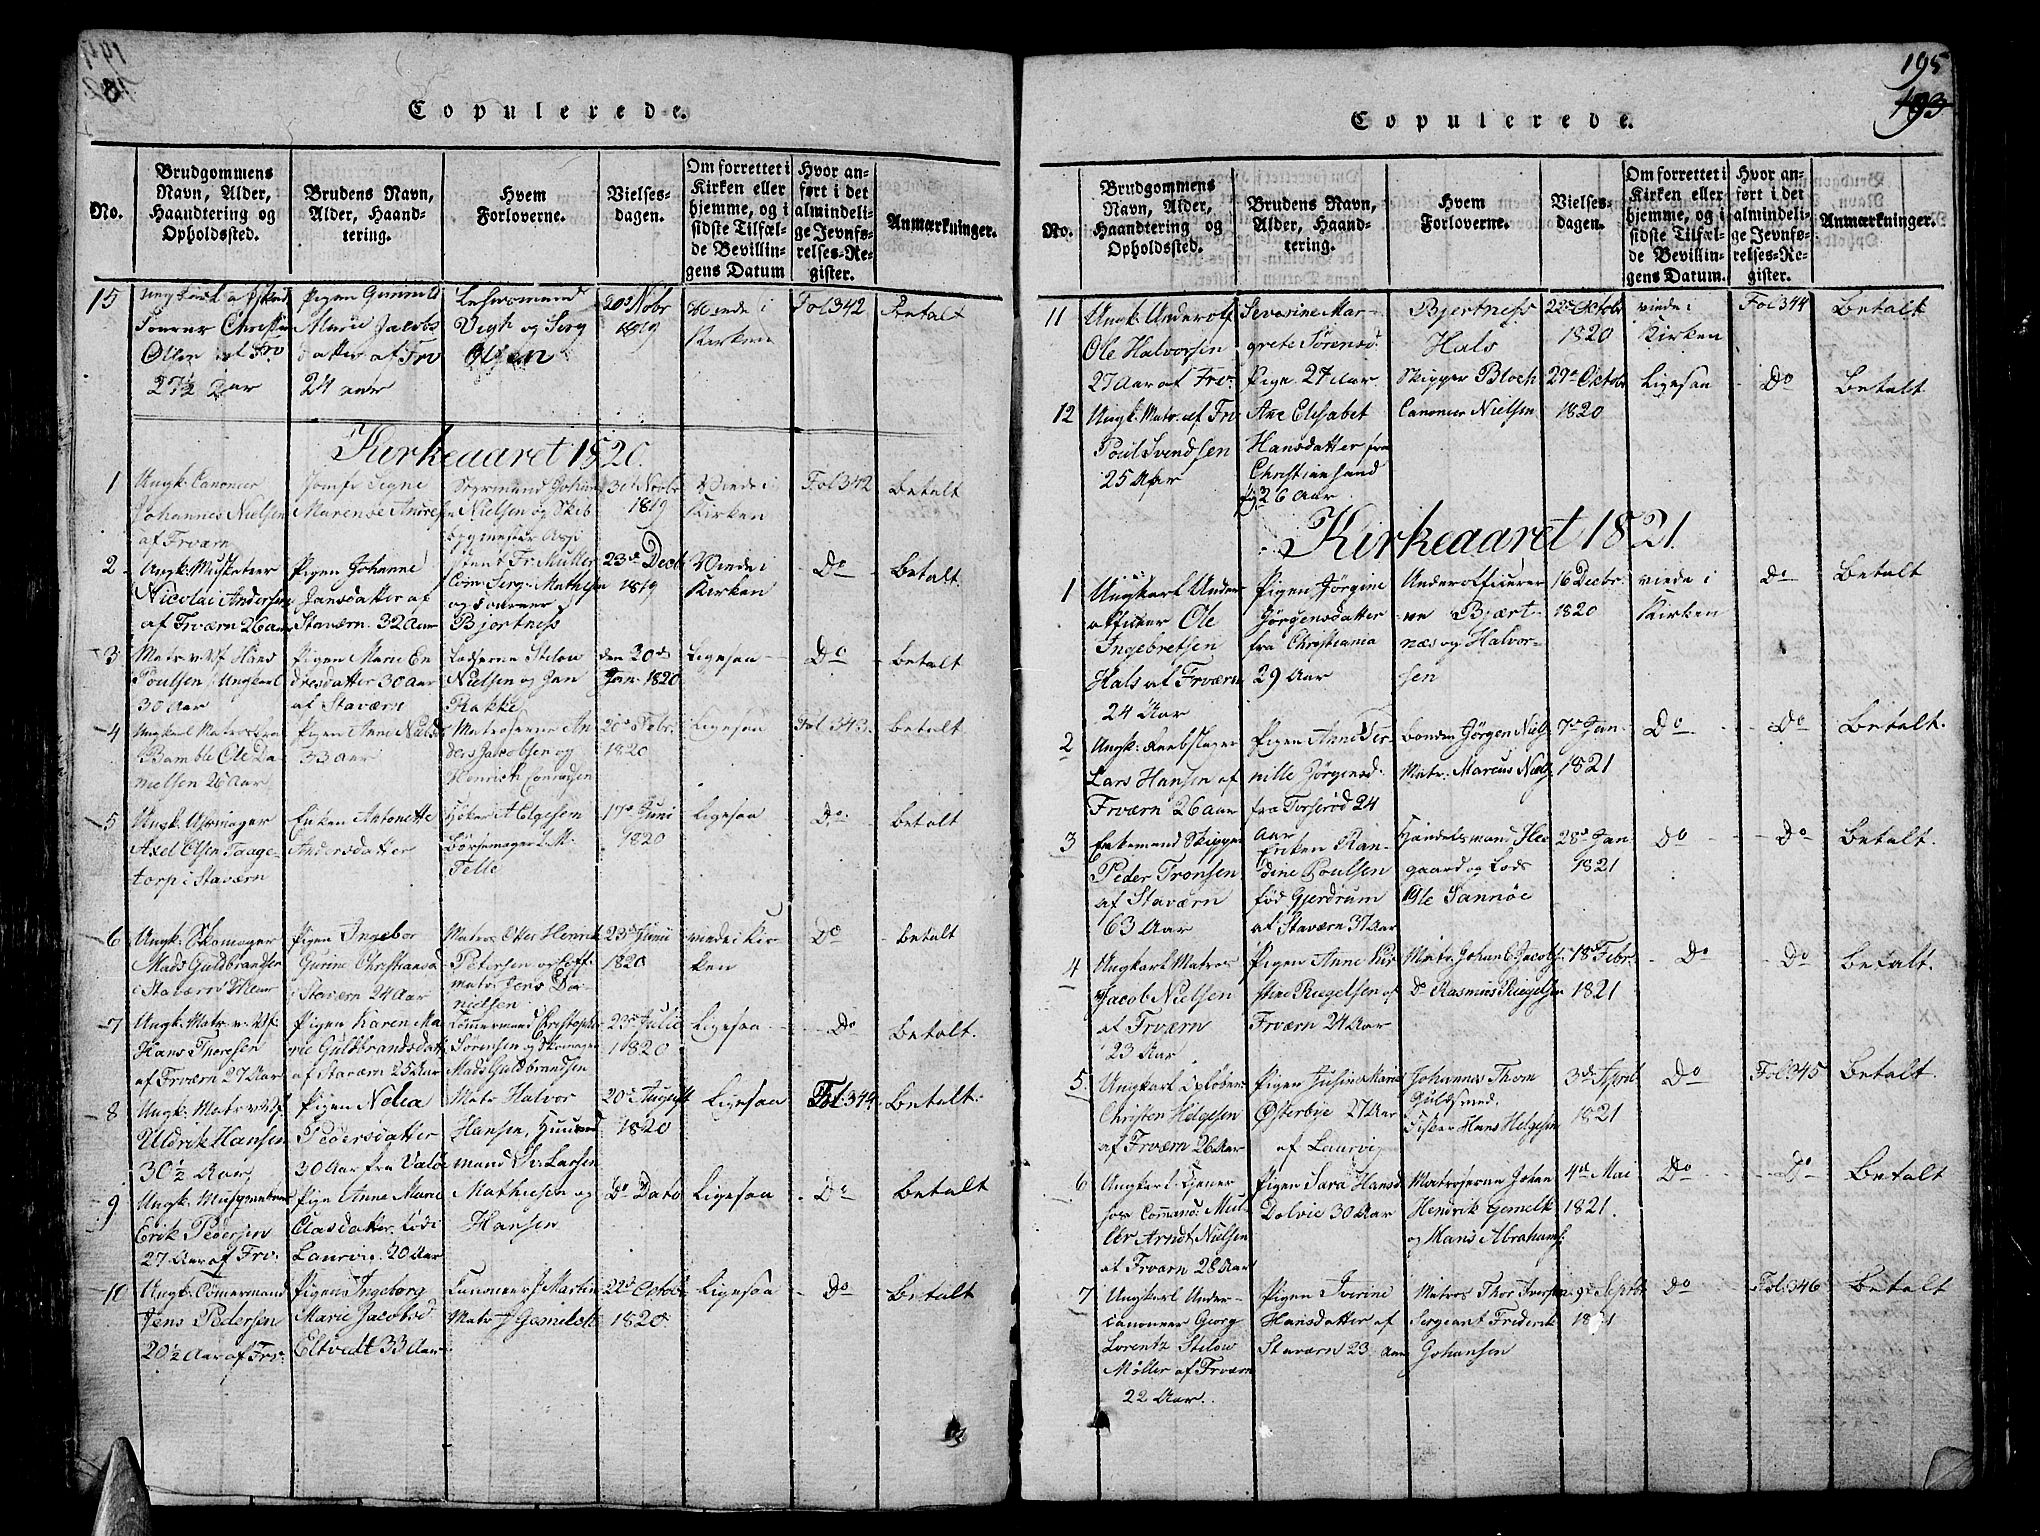 Copulerede.
No.
Brudgommens
Navn, Alder,
Haandtering og
Opholdssted.
Brudens Navn,
Alder, Haand-
tering.
Hvem
Forloverne.
Vielses-
dagen.
Om forrettet i
Kirken eller
hjemme, og i
sidste Tilfæl-
de Bevillin-
gens Datum
Hvor an-
ført i det
almindeli-
ge Jevnfø-
relses-Re-
gister.
Anmærkninger.
15
Ollen
27½ Aar
Pigen
Marie Jacobs
datter af Frv
24 aar
og Serg
Olsen
20d Nobr
1819
Viede i
Kirken
Fol 342
Betalt
Kirkeaaret 1820.
1
Ungk: Canoneer
Johannes Nielsen
af Frværn
Jomfr Signe
Marense
Nielsen og
Fr. Müller
Nobr
1819
Viede i
Kirken
Fol 342
Betalt
2
Ungk: Musketeer
Nicolai Andersen
af Frværn 26 aar
Pigen Johanne
Jansdatter af
Staværn. 32 Aar
Serg: Mathisen
og
Bjortness
23d Decb
1819
Viede i
Kirken
Do
Betalt
3
Matr v Vf Hans
Poulsen Ungkarl
30 Aar
Pigen Marie En
dresdatter 30 Aar
af Staværn
Lodserne Stilou
Nielsen og Jan
Rakke
den 30d
Jan. 1820
Ligesaa
Do
Betalt
4
Ungkarl Matros fra
Bamble Ole Da
nielsen 26 Aar
Pigen Anne Nields
33 Aar
Matroserne An
ders Jacobsen og
Henrich Conradsen
20d Febr
1820
Ligesaa
Fol 343
Betalt
5
Ungk:
Axel Olsen Taage-
torp i Staværn
Enken Antonette
Andersdatter
Høker A Elgesen
Felle
17d Juni
1820
Ligesaa
Do
Betalt
6
Ungk: Skomager
Mads Guldbrandsen
i Staværn
Pigen Ingebor
Gurine Christiansd
i Staværn 24 Aar
Matros Otter Henrik
Petersen
matr Jens Da-
nielsen
23d Juni
1820
viede i Kir-
ken
Do
Betalt
7
Ungk: Matr v. Vf:
Hans Thoresen
af Frværn 27 Aar
Pigen Karen Ma
rie Guldbrandsdatt
af Staværn 25 Aar
Tømmermand Christopher
Sørensen og Skomager
Mads Guldbrandsen
23d Julii
1820
Ligesaa
Do
Betalt.
8
Ungk: Matr v Vf.
Uldrik Hansen
30½ Aar
Pigen Nolia
Pedersdatter
30 Aar fra Valøe
Matr Halvor
Hansen,
mand Ol: Larsen
20d August
1820
Ligesaa
Fol: 344
Betalt.
9
Ungk:
Erik Pedersen
27 Aar af Frv.
Pige Anne Marie
Clasdatter. født i
Laurvig. 20 Aar
Mathiesen og
Hansen
Do Dato
Ligesaa
Do
Betalt
10
Ungk: Tømermand
Jens Pedersen
20½ Aar af Frv:
Pigen Ingeborg
Marie Jacobsd
Eltvedt 33 Aar
Canoneer J Martin
Matr J Gemelk
22d Octobr
1820.
Ligesaa
Do
Betalt
195
193
Copulerede.
No.
Brudgommens
Navn, Alder,
Haandtering og
Opholdssted.
Brudens Navn,
Alder, Haand-
tering.
Hvem
Forloverne.
Vielses-
dagen.
Om forrettet i
Kirken eller
hjemme, og i
sidste Tilfæl-
de Bevillin-
gens Datum.
Hvor an-
ført i det
almindeli-
ge Jevnfø-
relses-Re-
gister.
Anmærkninger.
11
Ungk: Underoff
Ole Halvorsen
27 Aar af Frv.
Severine Mar-
grete Sørensd.
Pige. 27 Aar.
Bjertness
Hals
22d Octobr
1820
viede i
Kirken
Fol 344
Betalt
12
Ungk: Matr. af Frv
Poul Svendsen
25 Aar
Ane Elisabet
Hansdatter fra
Christiansand
26 Aar
Skipper Bloch
Canoneer Nielsen
29d Octobr
1820
Ligesaa
Do
Betalt
Kirkeaaret 1821.
1
Ungkarl Under-
officier Ole
Ingebretsen
Hals af Frværn
24 Aar
Pigen Jørgine
Jørgensdatter
fra Christiania
29 Aar
Underofficerer
ne Bjært-
næs og Halvor-
sen
16 Decbr.
1820
viede i
Kirken
Do
Betalt
2
Ungk: Reebslager
Lars Hansen af
Frværn 26 aar
Pigen Anne Per-
nille Jørgensd.
fra Torserød 24
Aar
bonden Jørgen Niels
Matr: Marcus Niels
7d Jan
1821
Do
Do
Betalt.
3
Enkemand Skipper
Peder Tronsen
af Staværn
63 Aar
Enken Ran-
dine Poulsen
fød Gjerdrum
af Staværn 37 Aar
Handelsmand Hee
gaard og Lods
Ole Sannøe
28d Jan
1821
Do
Do
Betalt.
4
Ungkarl Matros
Jacob Nielsen
af Frværn
23 Aar
Pigen Anne Kir
stine Riegelsen af
Frværn 24 Aar
Matr. Johan C Jacobs
Do Rasmus Riegelsen
18d Febr.
1821
Do
Do
Betalt.
5.
Ungkarl Oplober
Christen Helgesen
af Frværn 26 Aar
Pigen Jusine Marie
Østerbye 27 Aar
af Laurvig
Johannes Thom
Guldsmed.
Fisker Hans Helgesen
3d April
1821
Do
Fol 345
Betalt.
6
Ungkarl Tjener
hos Commandr Mul-
ler Arndt Nielsen
af Frværn 28 Aar
Pigen Sara Hansd
Dolvie 30 Aar
Matroserne Johan
Hendrik Gemelk
og Hans Abrahams:
4d Mai
1821.
Do
Do
Betalt
7
Ungkarl Under-
canoneer Georg
Lorentz Stilow
Møller af Frværn
22 Aar.
Pigen Iverine
Hansdatter af
Staværn 23 aar
Matros Thor Iversen
Sergeant Friderik
Johansen
9d Septbr
1821
Do
Fol 346
Betalt